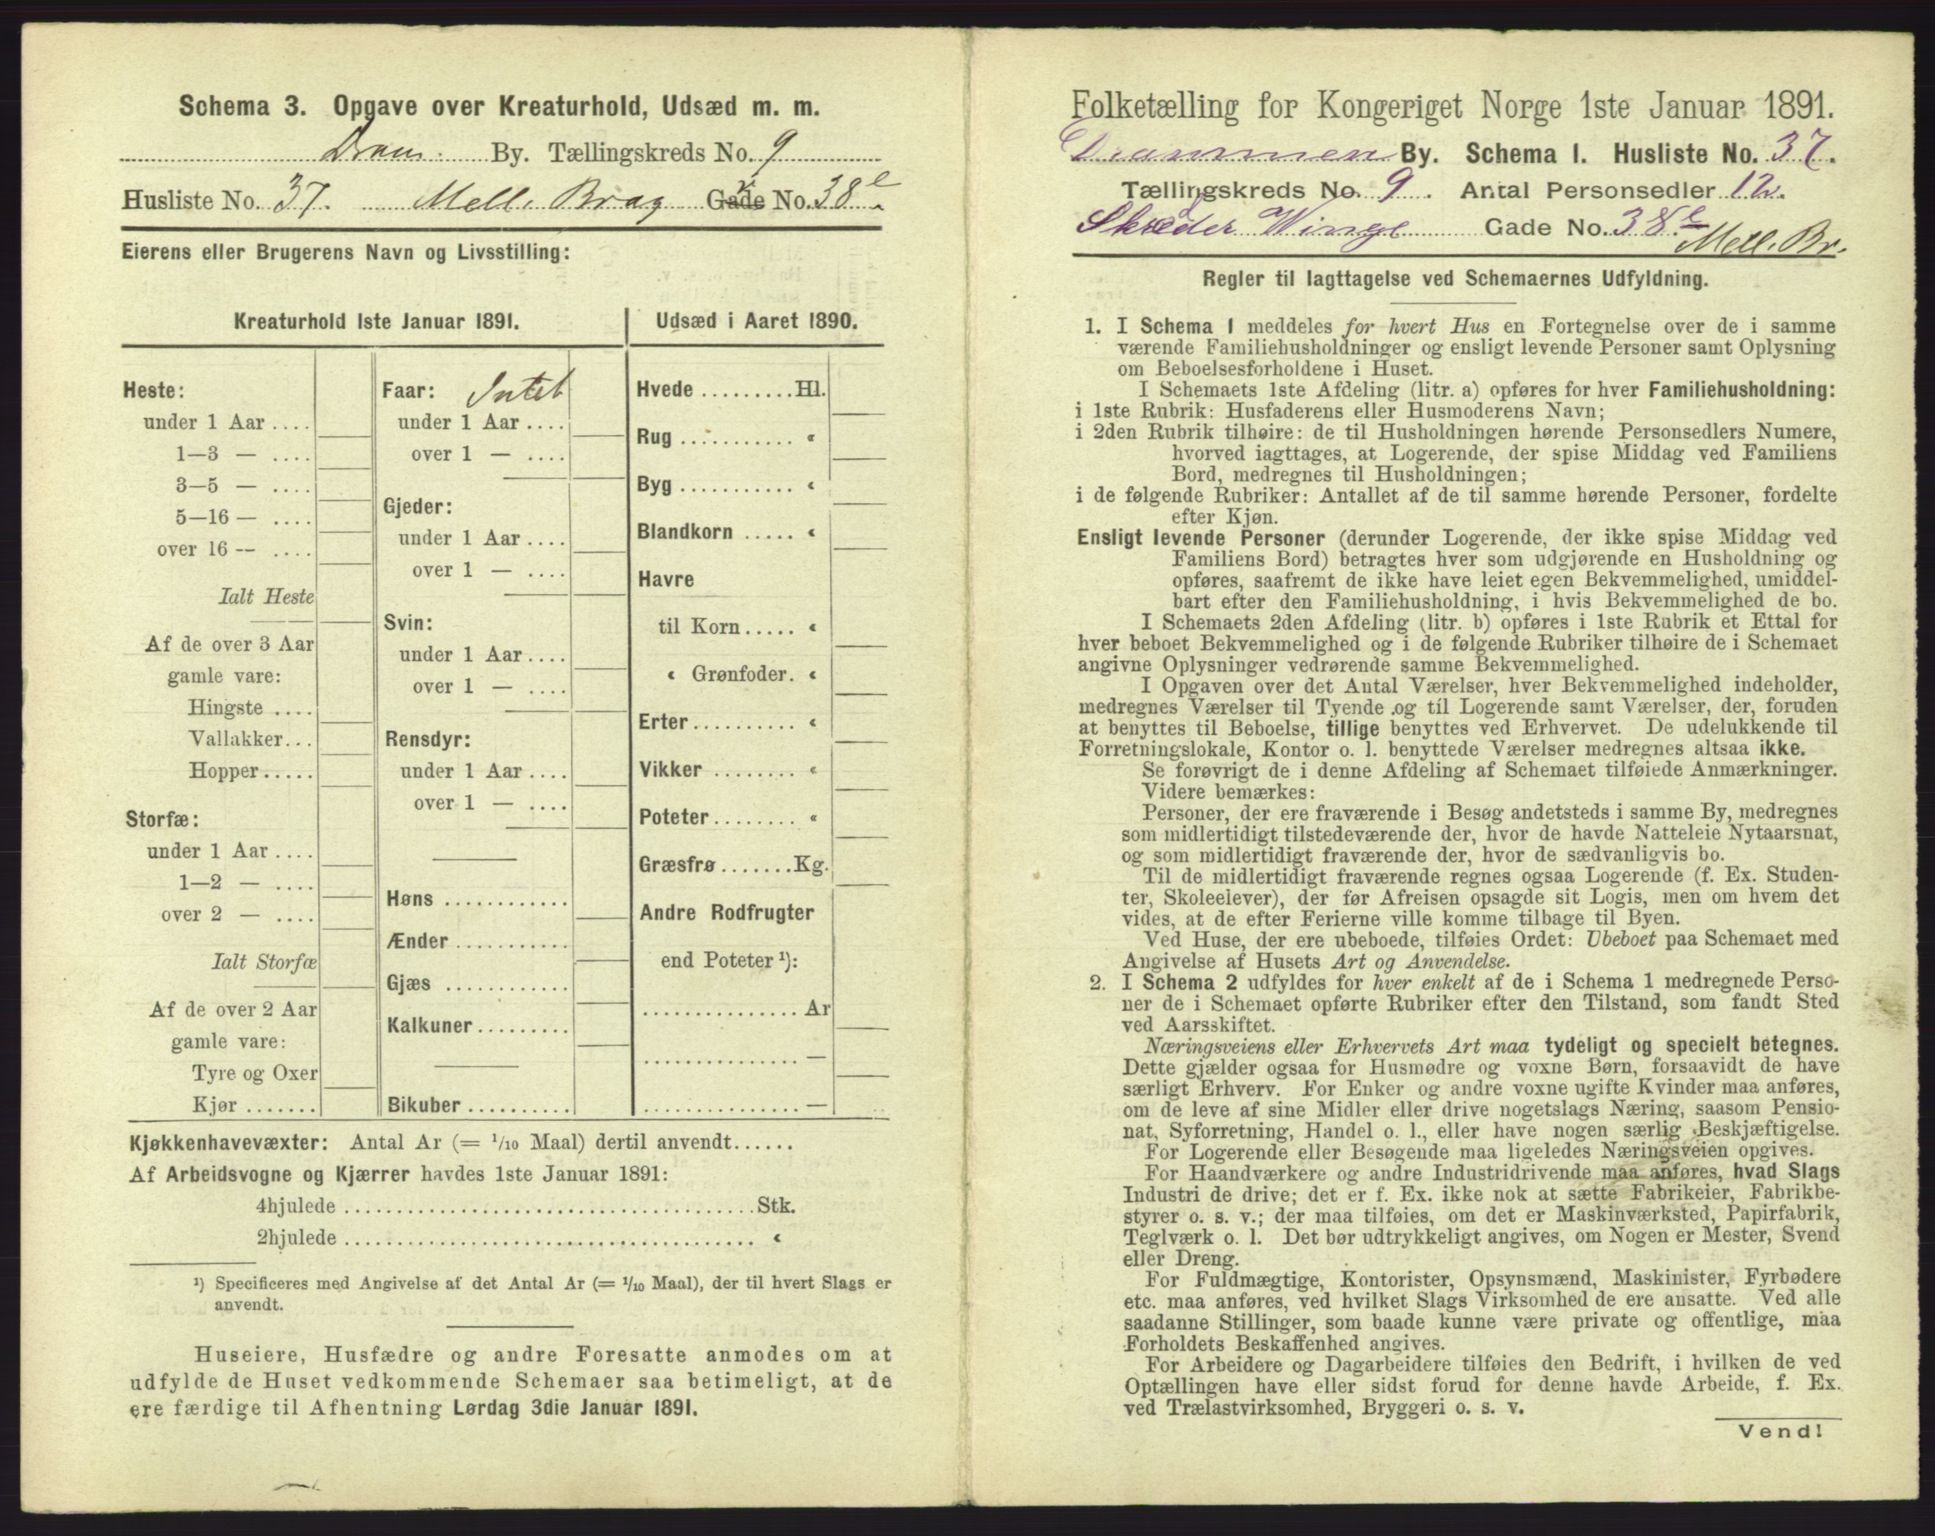 Schema 3. Opgave over Kreaturhold, Udsæd m. m.
Dram. By. Tællingskreds No. 9
Husliste No. 37. Mell. Brag Gade No. 38e
Eierens eller Brugerens Navn og Livsstilling:
Kreaturhold 1ste Januar 1891.
Heste:
under 1 Aar ....
1—3 — ....
3—5 — ....
5—16 — ....
over 16 — ....
Ialt Heste
Af de over 3 Aar
gamle vare:
Hingste ....
Vallakker...
Hopper.....
Storfæ:
under 1 Aar ....
1—2 — ....
over 2 — ....
Ialt Storfæ
Af de over 2 Aar
gamle vare:
Tyre og Oxer
Kjør .......
Faar: Intet
under 1 Aar ....
over 1 — ....
Gjeder:
under 1 Aar ....
over 1 — ....
Svin:
under 1 Aar ....
over 1 — ....
Rensdyr:
under 1 Aar ....
over 1 — ....
Høns ............
Ænder ...........
Gjæs ............
Kalkuner.........
Bikuber ..........
Udsæd i Aaret 1890.
Hvede .........Hl.
Rug ........... «
Byg ........... «
Blandkorn ..... «
Havre
til Korn ..... «
« Grønfoder. «
Erter .......... «
Vikker ......... «
Poteter......... «
Græsfrø .......Kg.
Andre Rodfrugter
end Poteter ¹):
............... Ar
............... —
............... —
Kjøkkenhavevæxter: Antal Ar (= 1/10 Maal) dertil anvendt......
Af Arbeidsvogne og Kjærrer havdes 1ste Januar 1891:
4hjulede ....................................... Stk.
2hjulede ....................................... «
¹) Specificeres med Angivelse af det Antal Ar (= 1/10 Maal), der til hvert Slags er
anvendt.
Huseiere, Husfædre og andre Foresatte anmodes om at
udfylde de Huset vedkommende Schemaer saa betimeligt, at de
ere færdige til Afhentning Lørdag 3die Januar 1891.
Folketælling for Kongeriget Norge 1ste Januar 1891.
Drammen By. Schema 1. Husliste No. 37.
Tællingskreds No. 9. Antal Personsedler 12.
Skræder Winge Gade No. 38e Mell. Br.
Regler til Iagttagelse ved Schemaernes Udfyldning.
1. I Schema 1 meddeles for hvert Hus en Fortegnelse over de i samme
værende Familiehusholdninger og ensligt levende Personer samt Oplysning
om Beboelsesforholdene i Huset.
I Schemaets 1ste Afdeling (litr. a) opføres for hver Familiehusholdning:
i 1ste Rubrik: Husfaderens eller Husmoderens Navn;
i 2den Rubrik tilhøire: de til Husholdningen hørende Personsedlers Numere,
hvorved iagttages, at Logerende, der spise Middag ved Familiens
Bord, medregnes til Husholdningen;
i de følgende Rubriker: Antallet af de til samme hørende Personer, fordelte
efter Kjøn.
Ensligt levende Personer (derunder Logerende, der ikke spise Middag ved
Familiens Bord) betragtes hver som udgjørende en Husholdning og
opføres, saafremt de ikke have leiet egen Bekvemmelighed, umiddel-
bart efter den Familiehusholdning, i hvis Bekvemmelighed de bo.
I Schemaets 2den Afdeling (litr. b) opføres i 1ste Rubrik et Ettal for
hver beboet Bekvemmelighed og i de følgende Rubriker tilhøire de i Schemaet
angivne Oplysninger vedrørende samme Bekvemmelighed.
I Opgaven over det Antal Værelser, hver Bekvemmelighed indeholder,
medregnes Værelser til Tyende og til Logerende samt Værelser, der, foruden
at benyttes til Beboelse, tillige benyttes ved Erhvervet. De udelukkende til
Forretningslokale, Kontor o. l. benyttede Værelser medregnes altsaa ikke.
Se forøvrigt de i denne Afdeling af Schemaet tilføiede Anmærkninger.
Videre bemærkes:
Personer, der ere fraværende i Besøg andetsteds i samme By, medregnes
som midlertidigt tilstedeværende der, hvor de havde Natteleie Nytaarsnat,
og som midlertidigt fraværende der, hvor de sædvanligvis bo.
Til de midlertidigt fraværende regnes ogsaa Logerende (f. Ex. Studen-
ter, Skoleelever), der før Afreisen opsagde sit Logis, men om hvem det
vides, at de efter Ferierne ville komme tilbage til Byen.
Ved Huse, der ere ubeboede, tilføies Ordet: Ubeboet paa Schemaet med
Angivelse af Husets Art og Anvendelse.
2. I Schema 2 udfyldes for hver enkelt af de i Schema 1 medregnede Perso-
ner de i Schemaet opførte Rubriker efter den Tilstand, som fandt Sted
ved Aarsskiftet.
Næringsveiens eller Erhvervets Art maa tydeligt og specielt betegnes.
Dette gjælder ogsaa for Husmødre og voxne Børn, forsaavidt de have
særligt Erhverv. For Enker og andre voxne ugifte Kvinder maa anføres,
om de leve af sine Midler eller drive nogetslags Næring, saasom Pensio-
nat, Syforretning, Handel o. l., eller have nogen særlig Beskjæftigelse.
For Logerende eller Besøgende maa ligeledes Næringsveien opgives.
For Haandværkere og andre Industridrivende maa anføres, hvad Slags
Industri de drive; det er f. Ex. ikke nok at sætte Fabrikeier, Fabrikbe-
styrer o. s. v.; der maa tilføies, om det er Maskinværksted, Papirfabrik,
Teglværk o. l. Det bør udtrykkeligt angives, om Nogen er Mester, Svend
eller Dreng.
For Fuldmægtige, Kontorister, Opsynsmænd, Maskinister, Fyrbødere
etc. maa anføres, ved hvilket Slags Virksomhed de ere ansatte. Ved alle
saadanne Stillinger, som baade kunne være private og offentlige, maa
Forholdets Beskaffenhed angives.
For Arbeidere og Dagarbeidere tilføies den Bedrift, i hvilken de ved
Optællingen have eller sidst forud for denne havde Arbeide, f. Ex.
ved Trælastvirksomhed, Bryggeri o. s. v.
Vend!